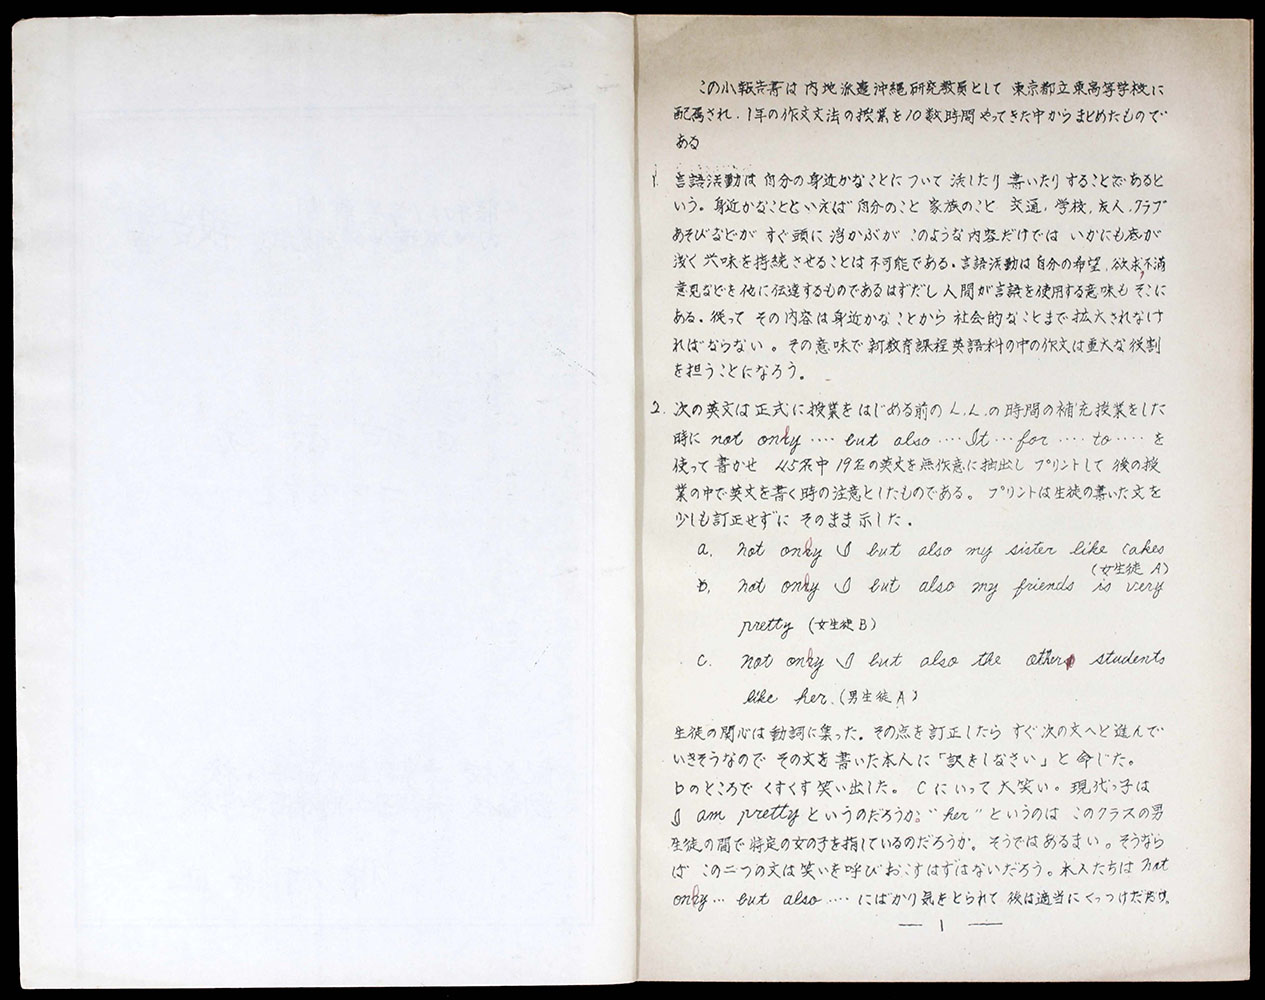 この小報告書は内地派遣沖縄研究教員として 東京都立東高等学校に
配属され、1年の作文文法の授業を10数時間やってきた中からまとめたもので
ある
1. 言語活動は自分の身近かなことについて話したり書いたりすることであると
いう。身近かなことといえば自分のこと 家族のこと 交通、学校、友人、クラブ
あそびなどが すぐ頭に浮かぶが このような内容だけでは いかにも底が
浅く興味を持続させることは不可能である。言語活動は自分の希望、欲求、不満
意見などを他に伝達するものであるはずだし人間が言語を使用する意味もそこに
ある。従って その内容は身近かなことから社会的なことまで拡大されなけ
ればならない。その意味で新教育課程英語科の中の作文は重大な役割
を担うことになろう。
2. 次の英文は正式に授業をはじめる前のL.L.の時間の補充授業をした
時に not only ‥‥ but also ‥‥ It ‥‥ for ‥‥ to ‥‥ を
使って書かせ 45名中19名の英文を無作意に抽出し プリントして後の授
業の中で英文を書く時の注意としたものである。 プリントは生徒の書いた文を
少しも訂正せずに そのまま示した。
a. not only I but also my sister like cakes
(女生徒 A)
b. not only I but also my friends is very
pretty (女生徒 B)
c. not only I but also the other students
like her. (男生徒 A)
生徒の関心は動詞に集った。その点を訂正したら すぐ次の文へと進んで
いきそうなので その文を書いた本人に「訳をしなさい」と命じた。
bのところで くすくす笑い出した。 Cにいって大笑い。現代っ子は
I am pretty というのだろうか。"her" というのは このクラスの男
生徒の間で特定の女の子を指しているのだろうか。そうではあるまい。そうなら
ば この二つの文は笑いを呼びおこすはずはないだろう。本人たちは not
only ‥‥ but also ‥‥ にばかり気をとられて 後は適当にくっつけただけ。
— 1 —